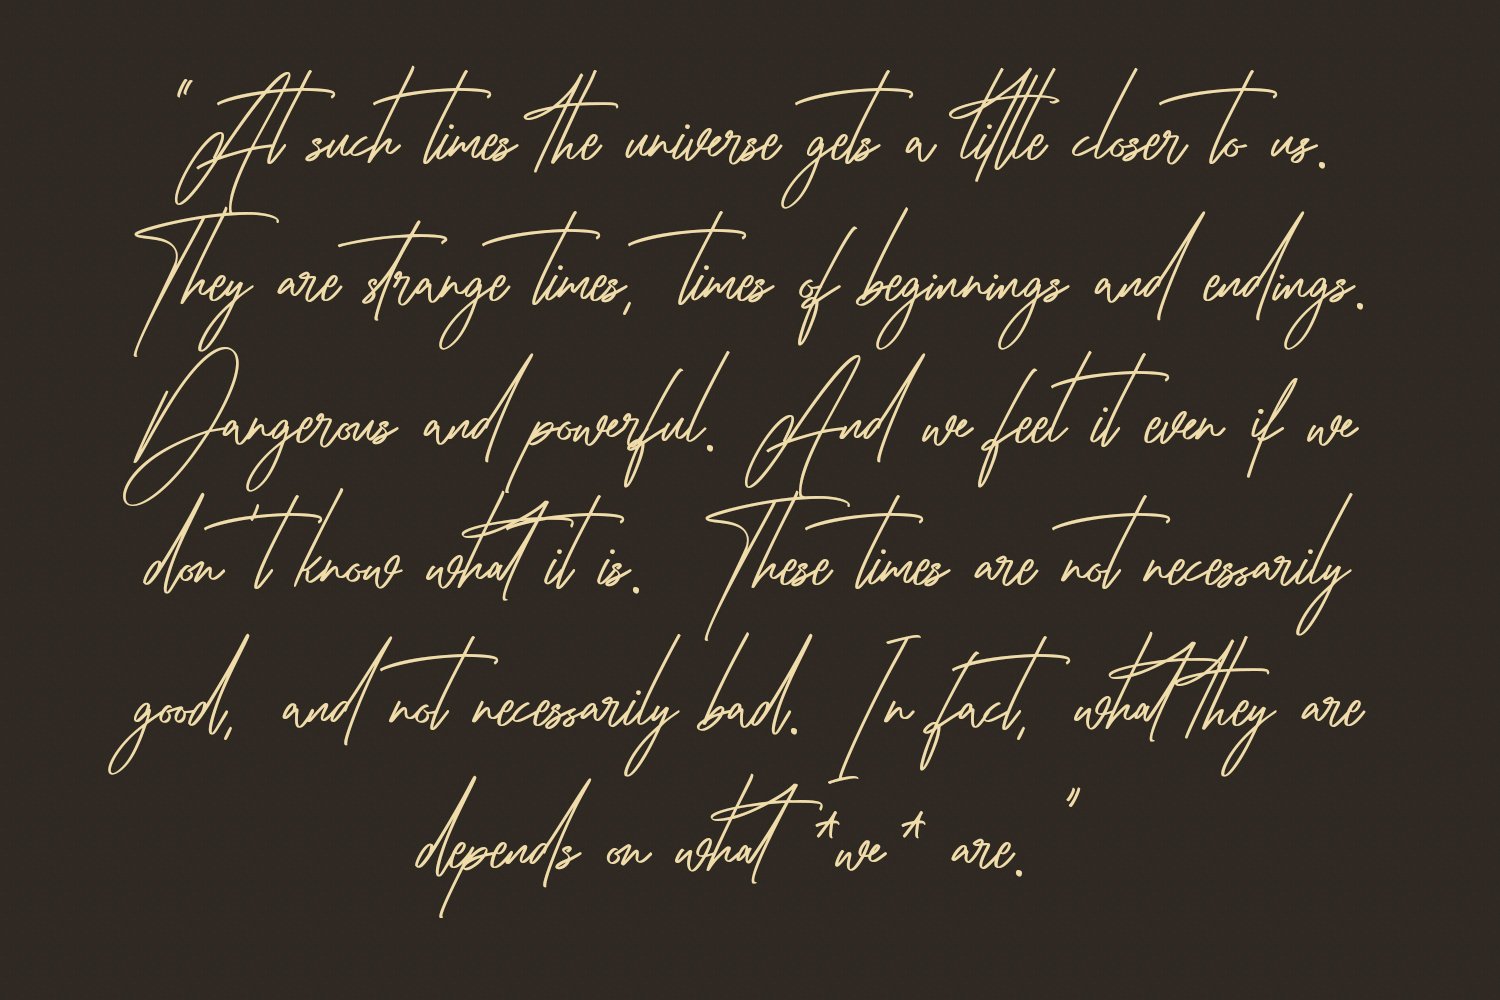 "At such times the universe gets a little closer to us.
They are strange times, times of beginnings and endings.
Dangerous and powerful. And we feel it even if we
don't know what it is. These times are not necessarily
good, and not necessarily bad. In fact, what they are
depends on what *we* are."